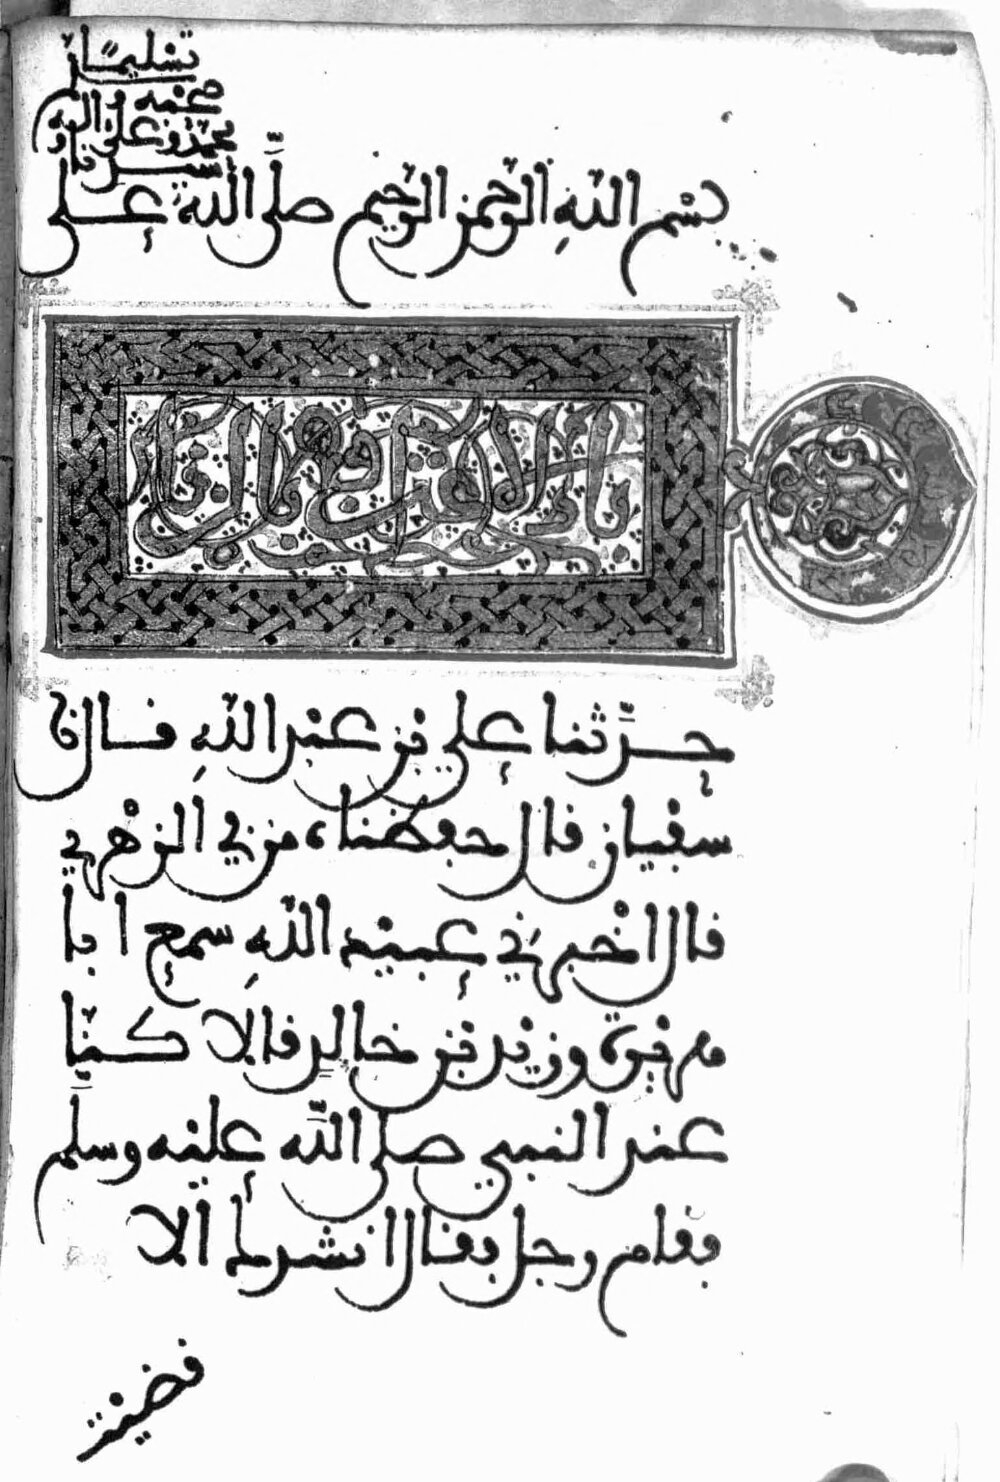 بسم الله الرحمن الرحيم صلى الله على
سيدنا و
محمد وعلى اله
صحبه و
تسليما
باب الاعتراف بالزنا
حدثنا علي بن عبد الله قال نا
سفيان قال حفظناه من في الزهري
قال اخبرني عبيد الله سمع ابا
هريرة وزيد بن خالد قالا كنا
عند النبي صلى الله عليه وسلم
فقام رجل فقال انشدك الا
قضيت